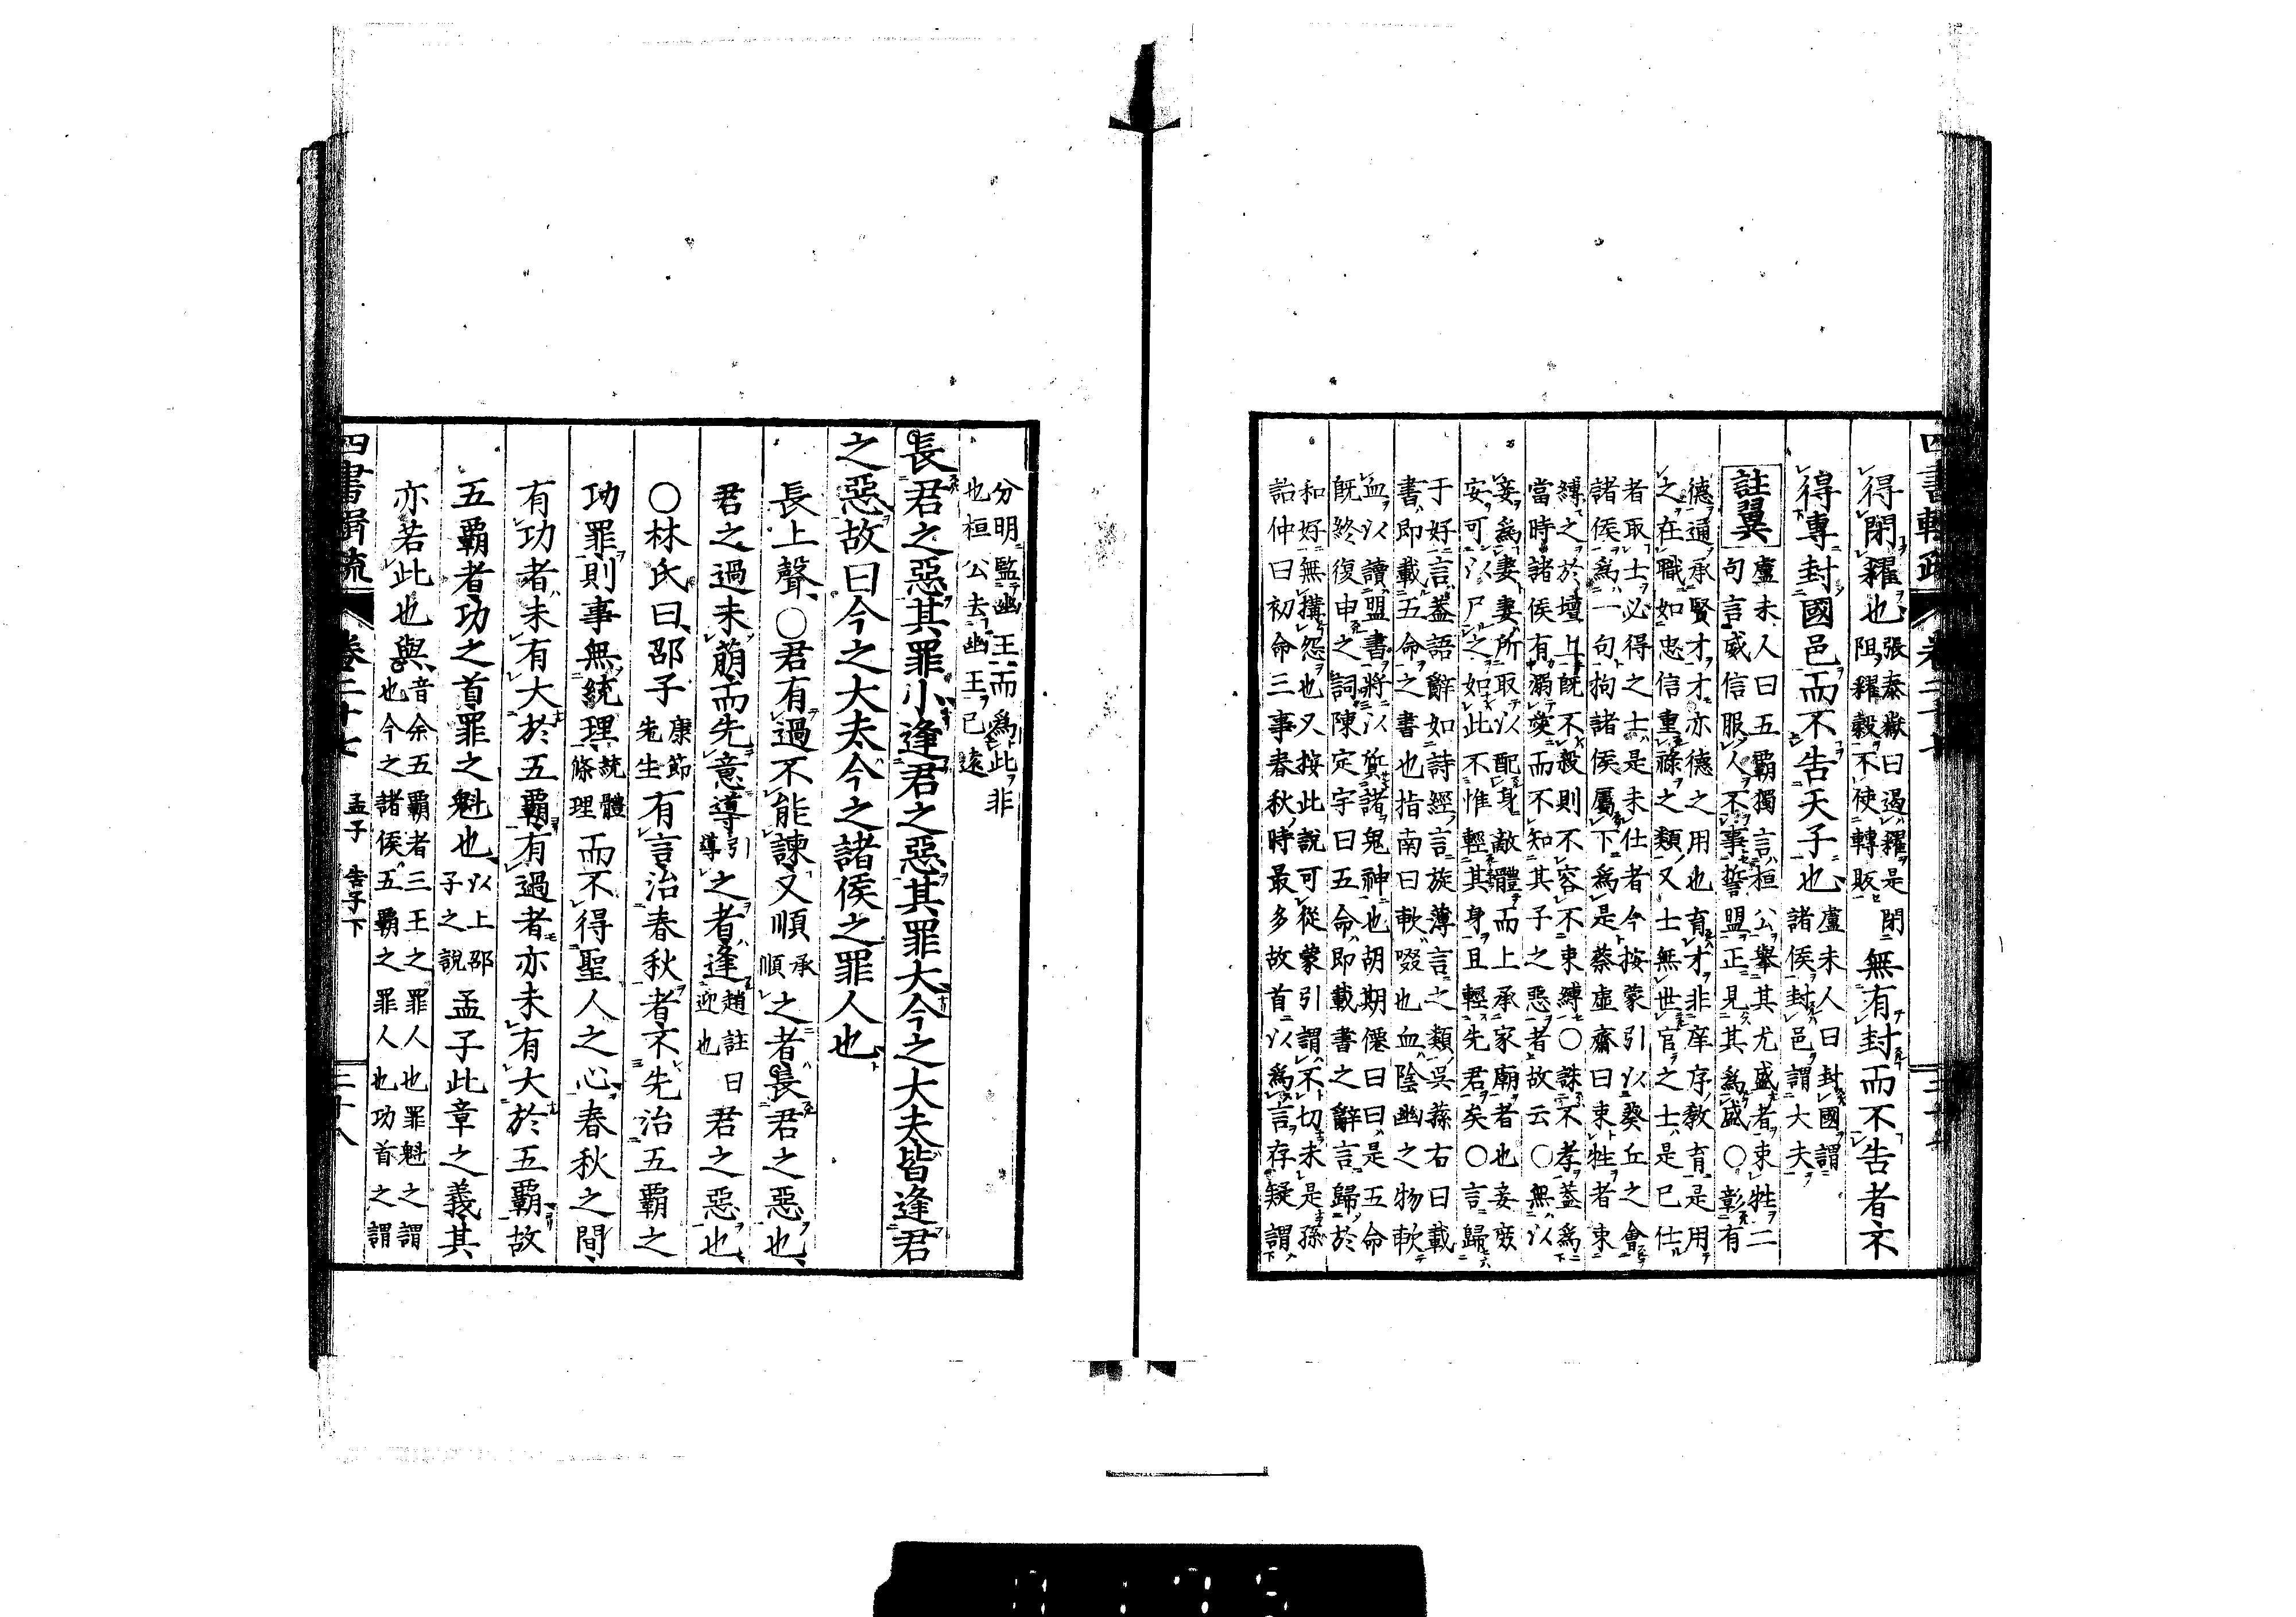 得閉糴也張泰嶽曰遏糴是閉
阻糴穀不使轉販無有封而不告者不
得專封國邑而不告天子也盧未人曰封國謂
諸侯封邑謂大夫
註翼盧未人曰五覇獨言桓公舉其尤盛者束牲二
句言威信服人不事誓盟正見其為盛○彰有
德通承賢才才亦德之用也育才非庠序教育是用
之在職如忠信重祿之類又士無世官之士是已仕
者取士必得之士是未仕者今按蒙引以葵丘之會
諸侯為一句拘諸侯屬下為是蔡虛齋曰束牲者束
縛之於壇上既不殺則不容不束縛○誅不孝蓋為
當時諸侯有溺嬖而不知其子之惡者故云○無以
妾為妻妻所取以配身敵體而上承家廟者也妾賤
安可以尸之如此不惟輕其身且輕先君矣○言歸
于好言蓋語辭如詩經言旋薄言之類吳蓀右曰載
書即載五命之書也指南曰軟啜也血陰幽之物軟
血以讀盟書將以質諸鬼神也胡期僊曰曰是五命
既終復申之詞陳定宇曰五命即載書之辭言歸於
和好無搆怨也又按此說可從蒙引謂不切未是孫
詒仲曰初命三事春秋時最多故首以為言存疑謂
分明監幽王而為此非
也桓公去幽王已遠
長君之惡其罪小逢君之惡其罪大今之大夫皆逢君
之惡故曰今之大夫今之諸侯之罪人也
長上聲○君有過不能諫又順承順之者長君之惡也
君之過未萠而先意導引導之者逢趙註曰迎也君之惡也
○林氏曰邵子康節先生有言治春秋者不先治五覇之
功罪則事無統理統體條理而不得聖人之心春秋之間
有功者未有大於五覇有過者亦未有大於五覇故
五覇者功之首罪之魁也以上邵子之說孟子此章之義其
亦若此也與音余五覇者三王之罪人也罪魁之謂
也今之諸侯五覇之罪人也功首之謂
孟子 告子下